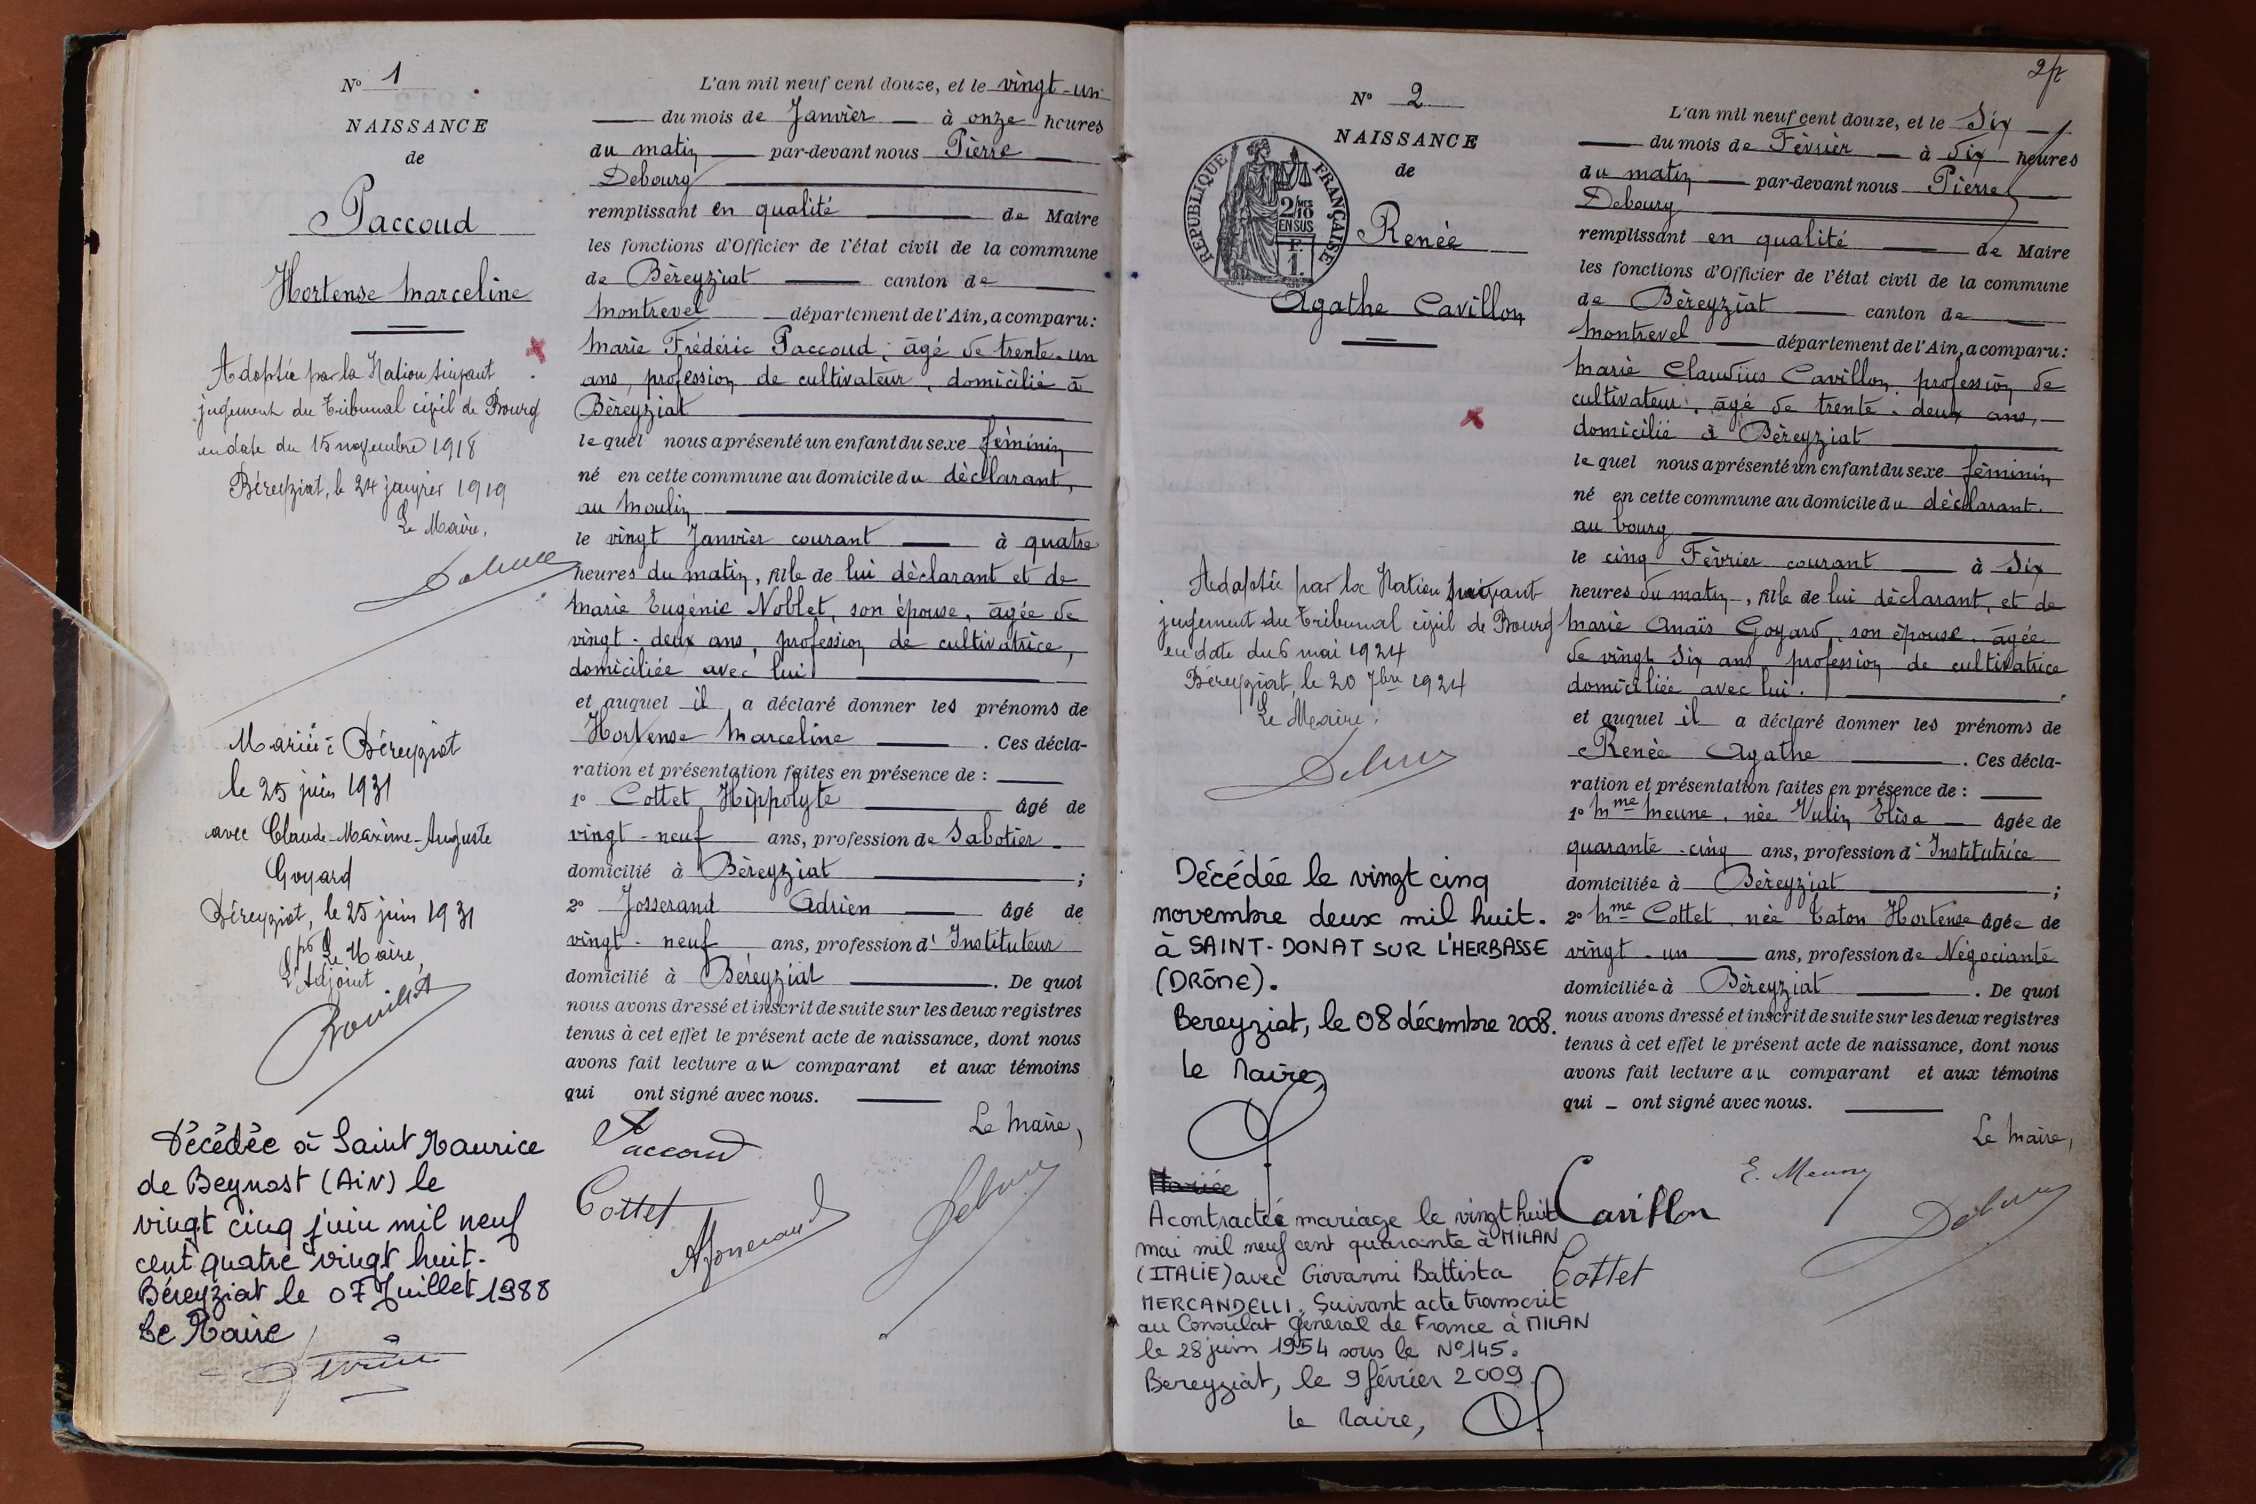 N° 1
NAISSANCE
de
Paccoud
Hortense Marceline
Adoptée par la Nation suivant
jugement du Tribunal civil de Bourg
en date du 15 novembre 1918
Béreyziat, le 24 janvier 1919
Le Maire,
Mariée à Béreyziat
le 25 juin 1931
avec Claude-Maxime-Auguste
Goyard
Béreyziat, le 25 juin 1931
pr Le Maire,
L'Adjoint
Décédée à Saint Maurice
de Beynost (Ain) le
vingt cinq juin mil neuf
cent quatre vingt huit.
Béreyziat le 07 Juillet 1988
Le Maire
L'an mil neuf cent douze, et le vingt-un
du mois de Janvièr à onze heures
du matin par-devant nous Pièrre
Debourg
remplissant en qualité de Maire
les fonctions d'Officier de l'état civil de la commune
de Bèreyziat canton de
Montrevel département de l'Ain, a comparu:
Marie Frédéric Paccoud, âgé de trente-un
ans, profession de cultivateur, domicilié à
Bèreyziat
lequel nous a présenté un enfant du sexe fèminin
né en cette commune au domicile du dèclarant,
au Moulin
le vingt Janvièr courant à quatre
heures du matin, fille de lui dèclarant et de
Marie Eugénie Noblet, son épouse, âgée de
vingt-deux ans, profession de cultivatrice,
domiciliée avec lui
et auquel il a déclaré donner les prénoms de
Hortense Marceline. Ces décla-
ration et présentation faites en présence de :
1° Cottet Hippolyte âgé de
vingt-neuf ans, profession de Sabotier
domicilié à Bèreyziat ;
2° Josserand Adrien âgé de
vingt-neuf ans, profession d'Instituteur
domicilié à Béreyziat. De quoi
nous avons dressé et inscrit de suite sur les deux registres
tenus à cet effet le présent acte de naissance, dont nous
avons fait lecture au comparant et aux témoins
qui ont signé avec nous.
Le Maire,
Paccoud
Cottet
AJosserand
2
N° 2
NAISSANCE
de
REPUBLIQUE FRANÇAISE
2/10
EN SUS
F.
1.
Renée
Agathe Cavillon
Adoptée par la Nation suivant
jugement du Tribunal civil de Bourg
en date du 6 mai 1924
Béreyziat, le 20 7bre 1924
Le Maire,
Décédée le vingt cinq
novembre deux mil huit.
à SAINT-DONAT SUR L'HERBASSE
(DRÔME).
Bereyziat, le 08 décembre 2008.
Le Maire,
Mariée
A contractée mariage le vingt huit
mai mil neuf cent quarante à MILAN
(ITALIE) avec Giovanni Battista
MERCANDELLI. Suivant acte transcrit
au Consulat général de France à MILAN
le 28 juin 1954 sous le N°145.
Bereyziat, le 9 février 2009
Le Maire,
L'an mil neuf cent douze, et le Six
du mois de Fèvrièr à dix heures
du matin par-devant nous Pièrre
Debourg
remplissant en qualité de Maire
les fonctions d'Officier de l'état civil de la commune
de Bèreyziat canton de
Montrevel département de l'Ain, a comparu:
Marie Claudius Cavillon, profession de
cultivateur, âgé de trente-deux ans,
domicilié à Bèreyziat
lequel nous a présenté un enfant du sexe fèminin
né en cette commune au domicile du dèclarant.
au bourg
le cinq Fèvrièr courant à Six
heures du matin, fille de lui dèclarant, et de
Marie Anaïs Goyard, son épouse, âgée
de vingt six ans, profession de cultivatrice
domiciliée avec lui.
et auquel il a déclaré donner les prénoms de
Renée Agathe. Ces décla-
ration et présentation faites en présence de :
1° Mme Meune, née Vulin Elisa âgée de
quarante-cinq ans, profession d'Institutrice
domiciliée à Bèreyziat ;
2° Mme Cottet née Taton Hortense âgée de
vingt-un ans, profession de Négociante
domiciliée à Bèreyziat. De quoi
nous avons dressé et inscrit de suite sur les deux registres
tenus à cet effet le présent acte de naissance, dont nous
avons fait lecture au comparant et aux témoins
qui ont signé avec nous.
Le Maire,
Cavillon
E. Meune
Cottet